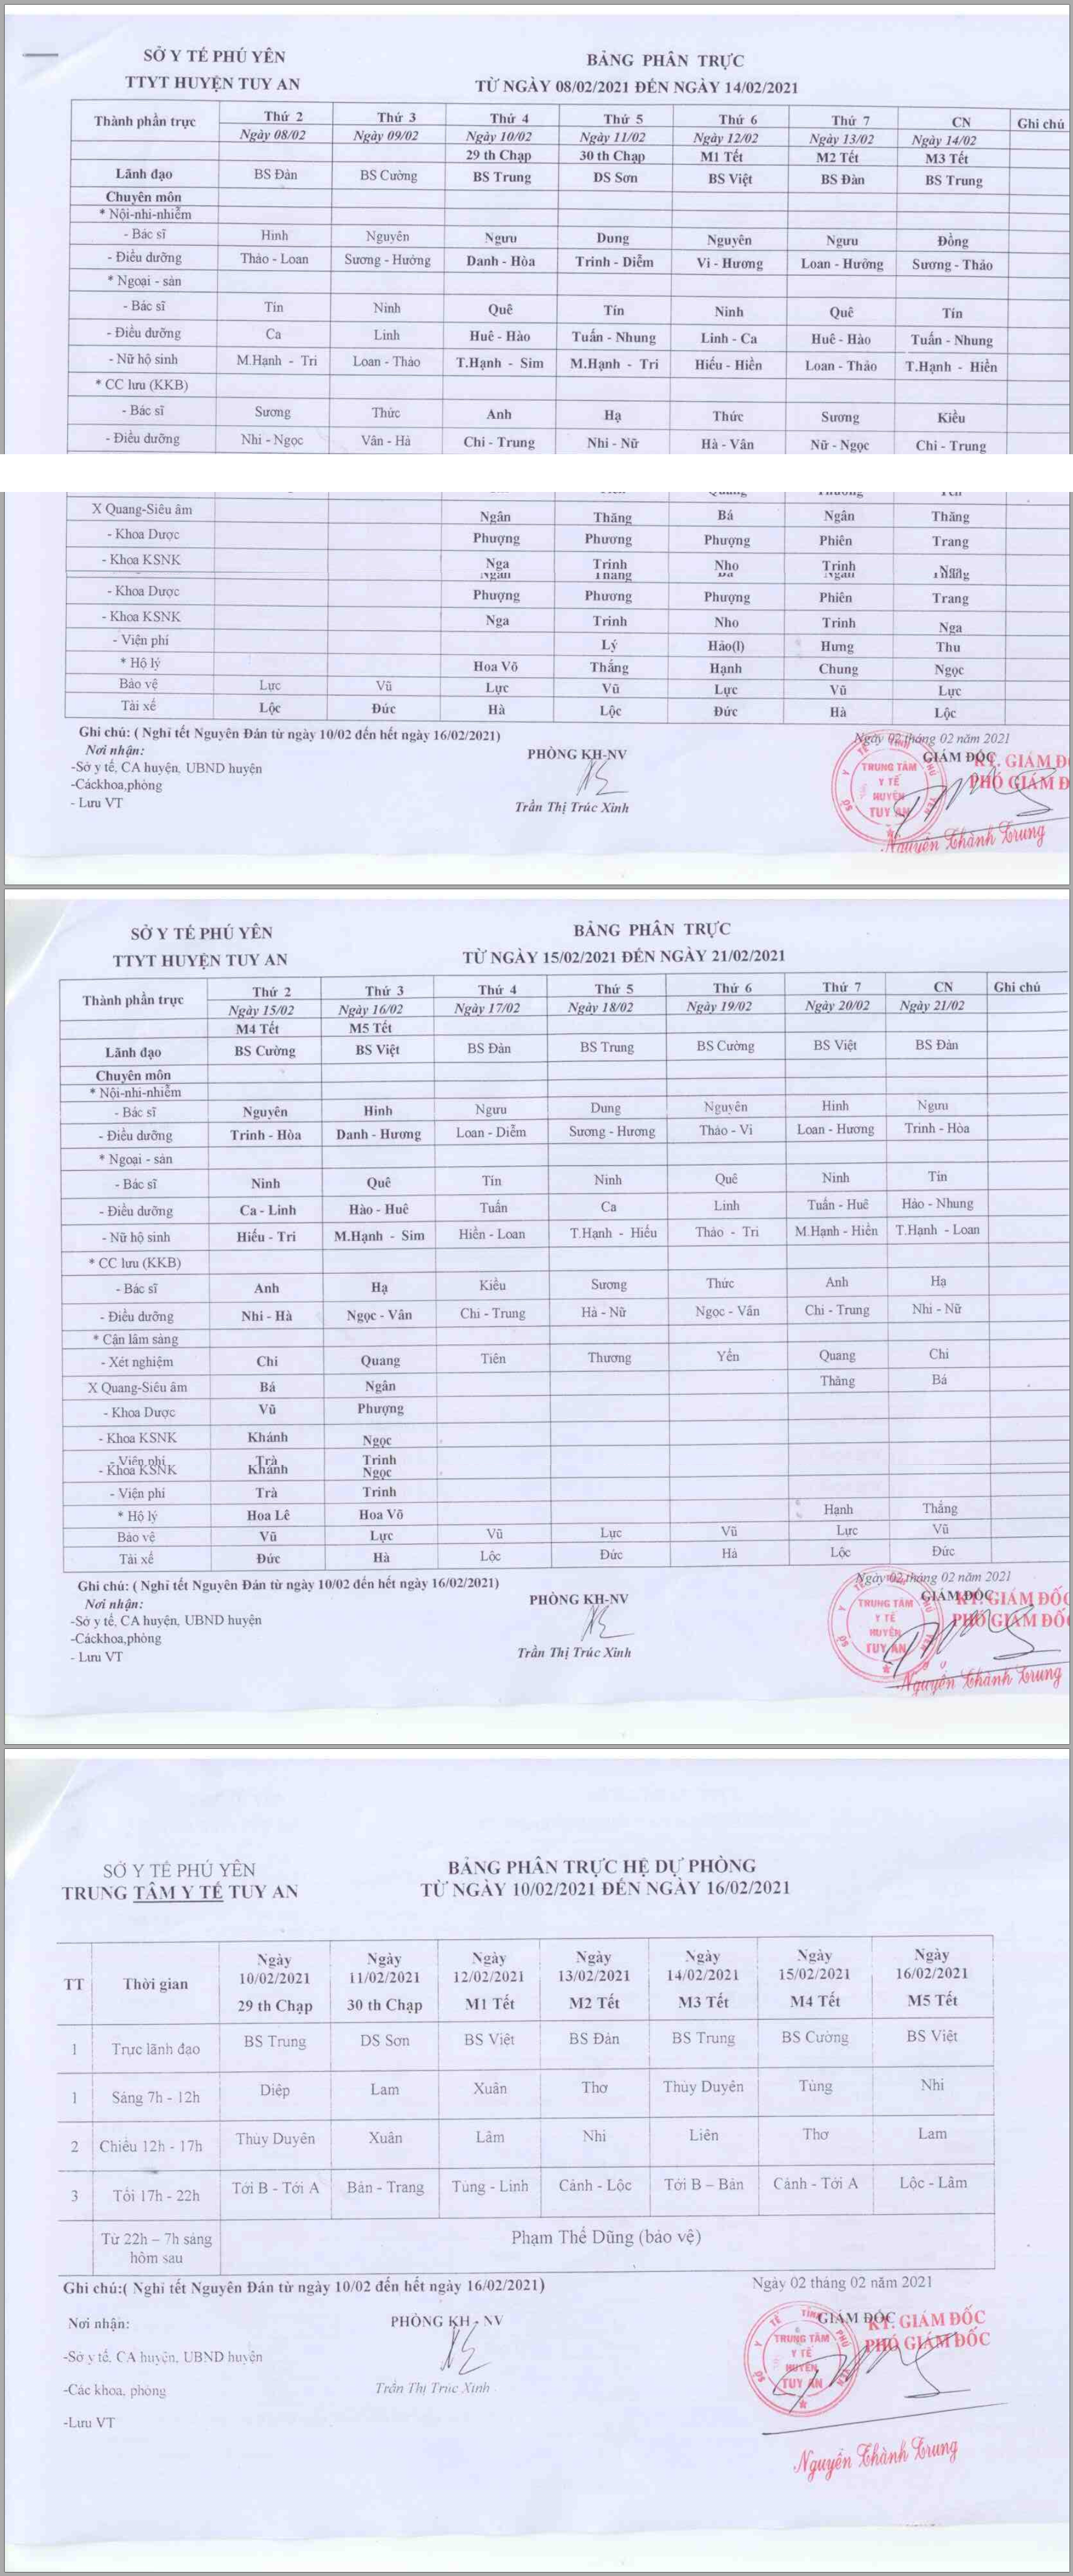 SỞ Y TẾ PHÚ YÊN
TTYT HUYỆN TUY AN
BẢNG PHÂN TRỰC
TỪ NGÀY 08/02/2021 ĐẾN NGÀY 14/02/2021
Thành phần trực Thứ 2 Thứ 3 Thứ 4 Thứ 5 Thứ 6 Thứ 7 CN Ghi chú
Ngày 08/02 Ngày 09/02 Ngày 10/02 Ngày 11/02 Ngày 12/02 Ngày 13/02 Ngày 14/02
29 th Chạp 30 th Chạp M1 Tết M2 Tết M3 Tết
Lãnh đạo BS Đàn BS Cường BS Trung DS Sơn BS Việt BS Đàn BS Trung
Chuyên môn
* Nội-nhi-nhiễm
- Bác sĩ Hinh Nguyên Ngưu Dung Nguyên Ngưu Đồng
- Điều dưỡng Thảo - Loan Sương - Hường Danh - Hòa Trinh - Diễm Vi - Hương Loan - Hường Sương - Thảo
* Ngoại - sản
- Bác sĩ Tín Ninh Quê Tín Ninh Quê Tín
- Điều dưỡng Ca Linh Huê - Hào Tuấn - Nhung Linh - Ca Huê - Hào Tuấn - Nhung
- Nữ hộ sinh M.Hạnh - Tri Loan - Thảo T.Hạnh - Sim M.Hạnh - Tri Hiếu - Hiền Loan - Thảo T.Hạnh - Hiền
* CC lưu (KKB)
- Bác sĩ Sương Thức Anh Hạ Thức Sương Kiều
- Điều dưỡng Nhi - Ngọc Vân - Hà Chi - Trung Nhi - Nữ Hà - Vân Nữ - Ngọc Chi - Trung
X Quang-Siêu âm Ngân Thăng Bá Ngân Thăng
- Khoa Dược Phượng Phương Phượng Phiên Trang
- Khoa KSNK Nga Trinh Nho Trinh Nga
- Khoa Dược Phượng Phương Phượng Phiên Trang
- Khoa KSNK Nga Trinh Nho Trinh Nga
- Viện phí Lý Hảo(l) Hưng Thu
* Hộ lý Hoa Võ Thắng Hạnh Chung Ngọc
Bảo vệ Lực Vũ Lực Vũ Lực Vũ Lực
Tài xế Lộc Đức Hà Lộc Đức Hà Lộc
Ghi chú: ( Nghỉ tết Nguyên Đán từ ngày 10/02 đến hết ngày 16/02/2021)
Nơi nhận:
-Sở y tế, CA huyện, UBND huyện
-Cáckhoa,phòng
- Lưu VT
PHÒNG KH-NV
Trần Thị Trúc Xinh
Ngày 02 tháng 02 năm 2021
GIÁM ĐỐC
KT. GIÁM Đ
PHÓ GIÁM Đ
TRUNG TÂM
Y TẾ
HUYỆN
TUY AN
Nguyễn Thành Trung
SỞ Y TẾ PHÚ YÊN
TTYT HUYỆN TUY AN
BẢNG PHÂN TRỰC
TỪ NGÀY 15/02/2021 ĐẾN NGÀY 21/02/2021
Thành phần trực Thứ 2 Thứ 3 Thứ 4 Thứ 5 Thứ 6 Thứ 7 CN Ghi chú
Ngày 15/02 Ngày 16/02 Ngày 17/02 Ngày 18/02 Ngày 19/02 Ngày 20/02 Ngày 21/02
M4 Tết M5 Tết
Lãnh đạo BS Cường BS Việt BS Đàn BS Trung BS Cường BS Việt BS Đàn
Chuyên môn
* Nội-nhi-nhiễm
- Bác sĩ Nguyên Hinh Ngưu Dung Nguyên Hinh Ngưu
- Điều dưỡng Trinh - Hòa Danh - Hương Loan - Diễm Sương - Hương Thảo - Vi Loan - Hương Trinh - Hòa
* Ngoại - sản
- Bác sĩ Ninh Quê Tín Ninh Quê Ninh Tín
- Điều dưỡng Ca - Linh Hào - Huê Tuấn Ca Linh Tuấn - Huê Hào - Nhung
- Nữ hộ sinh Hiếu - Tri M.Hạnh - Sim Hiền - Loan T.Hạnh - Hiếu Thảo - Tri M.Hạnh - Hiền T.Hạnh - Loan
* CC lưu (KKB)
- Bác sĩ Anh Hạ Kiều Sương Thức Anh Hạ
- Điều dưỡng Nhi - Hà Ngọc - Vân Chi - Trung Hà - Nữ Ngọc - Vân Chi - Trung Nhi - Nữ
* Cận lâm sàng
- Xét nghiệm Chi Quang Tiên Thương Yến Quang Chi
X Quang-Siêu âm Bá Ngân Thăng Bá
- Khoa Dược Vũ Phượng
- Khoa KSNK Khánh Ngọc
- Viện phí Trà Trinh
- Khoa KSNK Khánh Ngọc
- Viện phí Trà Trinh
* Hộ lý Hoa Lê Hoa Võ Hạnh Thắng
Bảo vệ Vũ Lực Vũ Lực Vũ Lực Vũ
Tài xế Đức Hà Lộc Đức Hà Lộc Đức
Ghi chú: ( Nghỉ tết Nguyên Đán từ ngày 10/02 đến hết ngày 16/02/2021)
Nơi nhận:
-Sở y tế, CA huyện, UBND huyện
-Cáckhoa,phòng
- Lưu VT
PHÒNG KH-NV
Trần Thị Trúc Xinh
Ngày 02 tháng 02 năm 2021
GIÁM ĐỐC
KT. GIÁM ĐỐC
PHÓ GIÁM ĐỐC
TRUNG TÂM
Y TẾ
HUYỆN
TUY AN
Nguyễn Thành Trung
SỞ Y TẾ PHÚ YÊN
TRUNG TÂM Y TẾ TUY AN
BẢNG PHÂN TRỰC HỆ DỰ PHÒNG
TỪ NGÀY 10/02/2021 ĐẾN NGÀY 16/02/2021
TT Thời gian Ngày Ngày Ngày Ngày Ngày Ngày Ngày
10/02/2021 11/02/2021 12/02/2021 13/02/2021 14/02/2021 15/02/2021 16/02/2021
29 th Chạp 30 th Chạp M1 Tết M2 Tết M3 Tết M4 Tết M5 Tết
1 Trực lãnh đạo BS Trung DS Sơn BS Việt BS Đàn BS Trung BS Cường BS Việt
1 Sáng 7h - 12h Diệp Lam Xuân Thơ Thùy Duyên Tùng Nhi
2 Chiều 12h - 17h Thùy Duyên Xuân Lâm Nhi Liên Thơ Lam
3 Tối 17h - 22h Tới B - Tới A Bản - Trang Tùng - Linh Cảnh - Lộc Tới B – Bản Cảnh - Tới A Lộc - Lâm
Từ 22h – 7h sáng hôm sau Phạm Thế Dũng (bảo vệ)
Ghi chú:( Nghỉ tết Nguyên Đán từ ngày 10/02 đến hết ngày 16/02/2021)
Nơi nhận:
-Sở y tế, CA huyện, UBND huyện
-Các khoa, phòng
-Lưu VT
PHÒNG KH - NV
Trần Thị Trúc Xinh
Ngày 02 tháng 02 năm 2021
GIÁM ĐỐC
KT. GIÁM ĐỐC
PHÓ GIÁM ĐỐC
TRUNG TÂM
Y TẾ
HUYỆN
TUY AN
Nguyễn Thành Trung